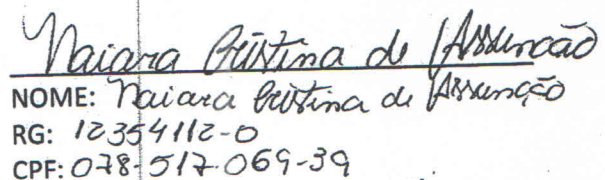 Naiara Cristina de Assunção
NOME: Naiara Cristina de Assunção
RG: 12354112-0
CPF: 078-517.069-39